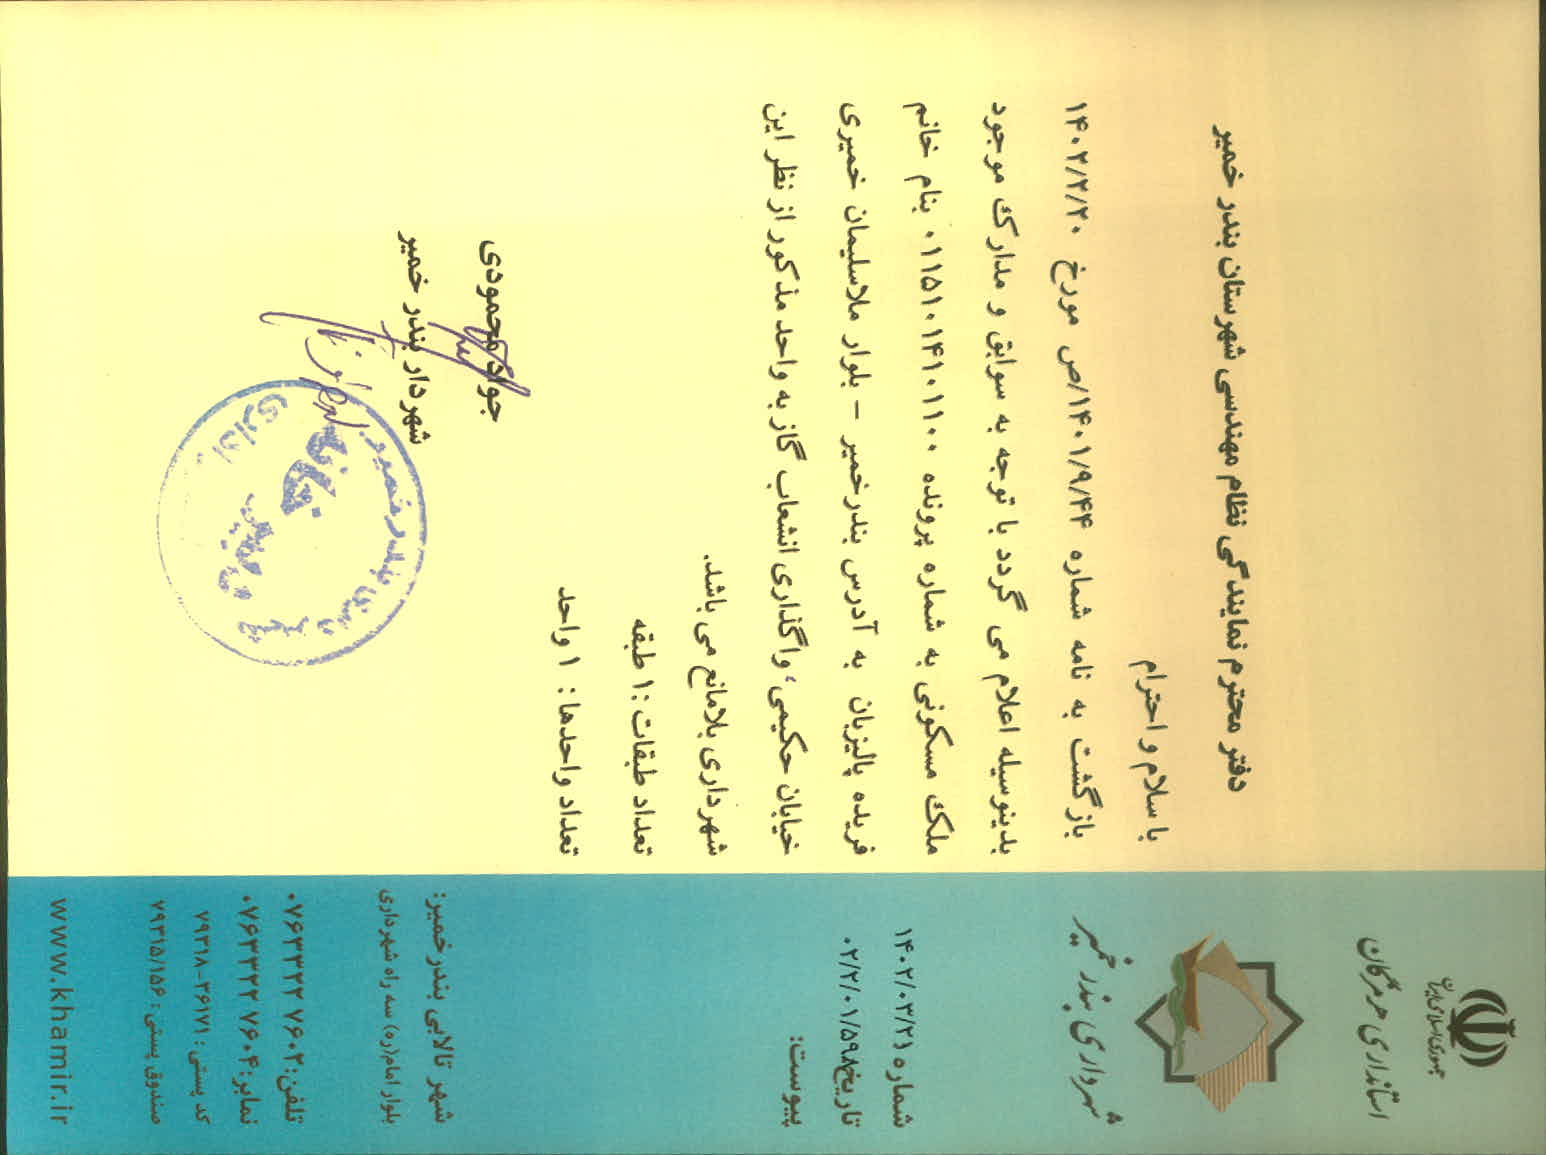 جمهوری اسلامی ایران
استانداری هرمزگان
شهرداری بندر خمیر
شماره ۱۴۰۲/۰۳/۲۱
تاریخ ۰۲/۲/۰۱/۵۹۸
پیوست:
دفتر محترم نمایندگی نظام مهندسی شهرستان بندر خمیر
با سلام و احترام
بازگشت به نامه شماره ۱۴۰۱/۹/۴۴/ص مورخ ۱۴۰۲/۲/۲۰
بدینوسیله اعلام می گردد با توجه به سوابق و مدارک موجود
ملک مسکونی به شماره پرونده ۰۱۱۵۱۰۱۴۱۰۱۱۰۰ بنام خانم
فریده پالیزبان به آدرس بندرخمیر – بلوار ملاسلیمان خمیری
خیابان حکیمی، واگذاری انشعاب گاز به واحد مذکور از نظر این
شهرداری بلامانع می باشد.
تعداد طبقات :۱ طبقه
تعداد واحدها : ۱ واحد
جواد محمودی
شهردار بندر خمیر
شهرداری بندر خمیر
اداری
شهر تالابی بندر خمیر:
بلوار امام(ره) سه راه شهرداری
تلفن: ۰۷۶۳۳۲۲۷۶۰۲
نمابر: ۰۷۶۳۳۲۲۷۶۰۴
کد پستی : ۳۶۱۷۱-۷۹۳۱۸
صندوق پستی : ۷۹۳۱۵/۱۵۶
www.khamir.ir